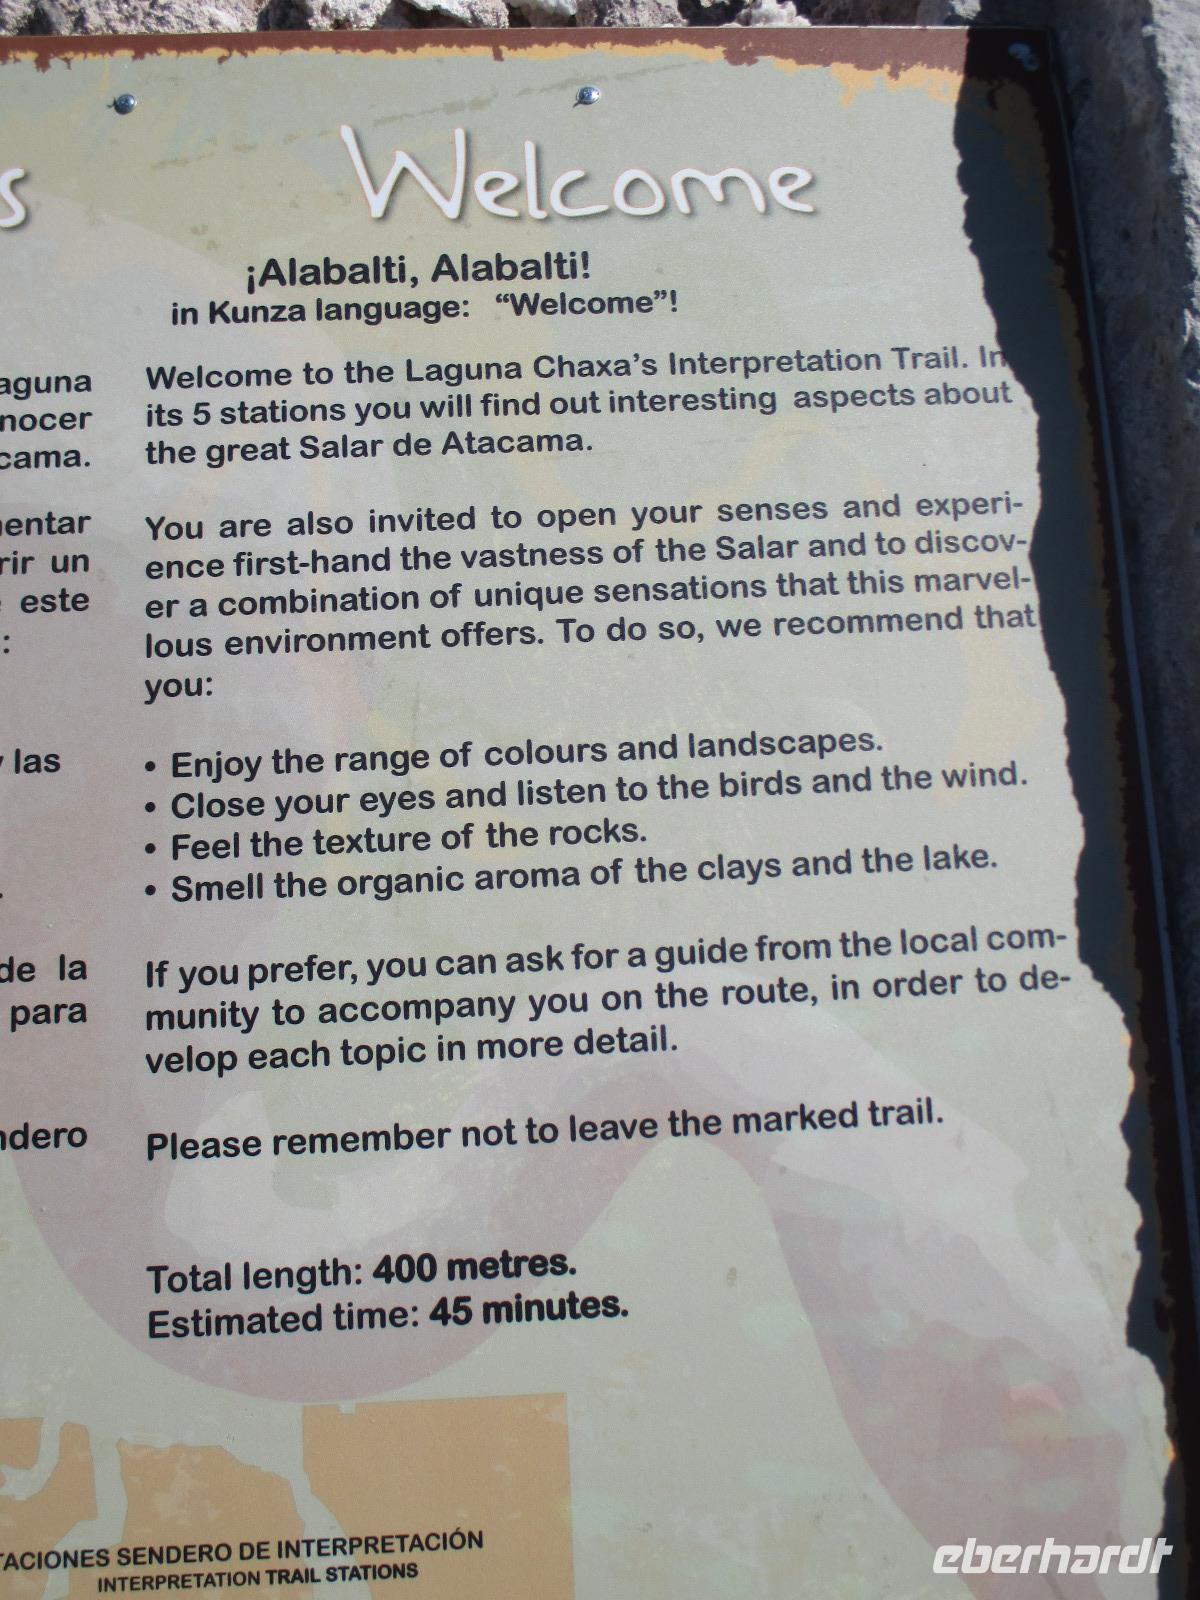 s
Welcome
¡Alabalti, Alabalti!
in Kunza language: “Welcome”!
aguna
nocer
cama.
Welcome to the Laguna Chaxa’s Interpretation Trail. In
its 5 stations you will find out interesting aspects about
the great Salar de Atacama.
entar
rir un
este
:
You are also invited to open your senses and experi-
ence first-hand the vastness of the Salar and to discov-
er a combination of unique sensations that this marvel-
lous environment offers. To do so, we recommend that
you:
las
.
• Enjoy the range of colours and landscapes.
• Close your eyes and listen to the birds and the wind.
• Feel the texture of the rocks.
• Smell the organic aroma of the clays and the lake.
de la
para
If you prefer, you can ask for a guide from the local com-
munity to accompany you on the route, in order to de-
velop each topic in more detail.
ndero
Please remember not to leave the marked trail.
Total length: 400 metres.
Estimated time: 45 minutes.
TACIONES SENDERO DE INTERPRETACIÓN
INTERPRETATION TRAIL STATIONS
eberhardt